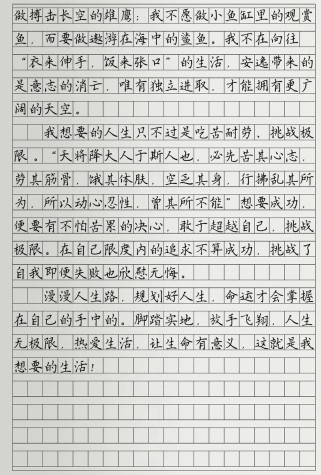 做搏击长空的雄鹰；我不愿做小鱼缸里的观赏
鱼，而要做遨游在海中的鲨鱼。我不在向往
“衣来伸手，饭来张口”的生活，安逸带来的
是意志的消亡，唯有独立进取，才能拥有更广
阔的天空。
我想要的人生只不过是吃苦耐劳、挑战极
限。“天将降大人于斯人也，必先苦其心志，
劳其筋骨，饿其体肤，空乏其身，行拂乱其所
为，所以动心忍性，曾其所不能”想要成功，
便要有不怕苦累的决心，敢于超越自己，挑战
极限。在自己限度内的追求不算成功，挑战了
自我即便失败也欣慰无悔。
漫漫人生路，规划好人生，命运才会掌握
在自己的手中的。脚踏实地，放手飞翔，人生
无极限，热爱生活，让生命有意义，这就是我
想要的生活！